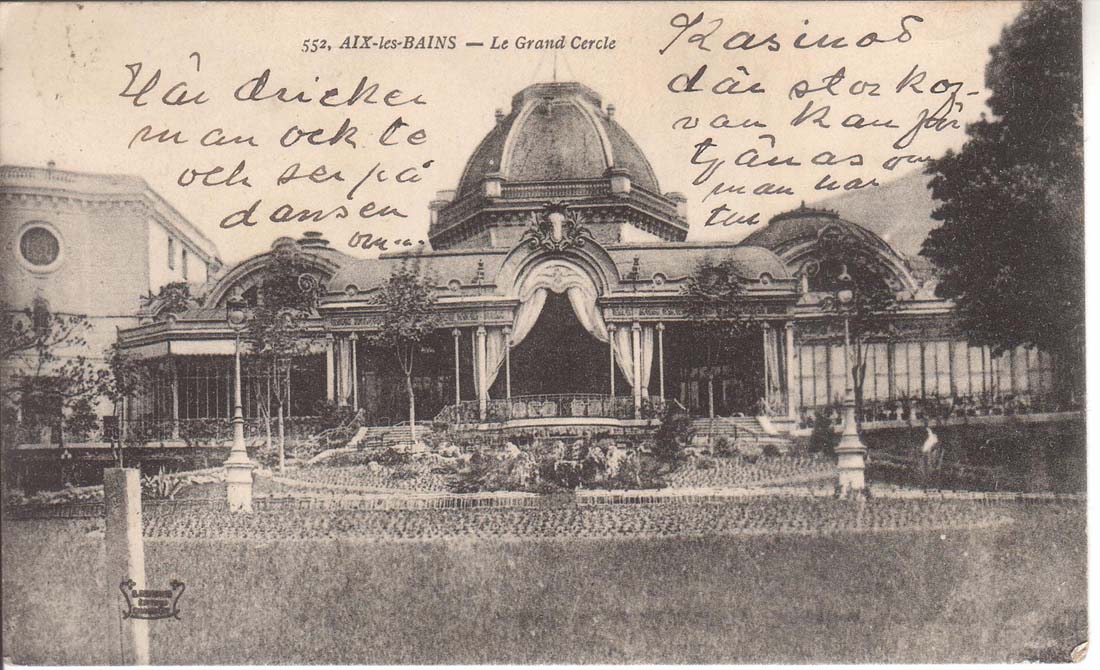 552, AIX-les-BAINS — Le Grand Cercle
Här dricker
man ock te
och ser på
dansen
om...
Kasinos
där storkor-
van kan för
tjänas om
man har
tur